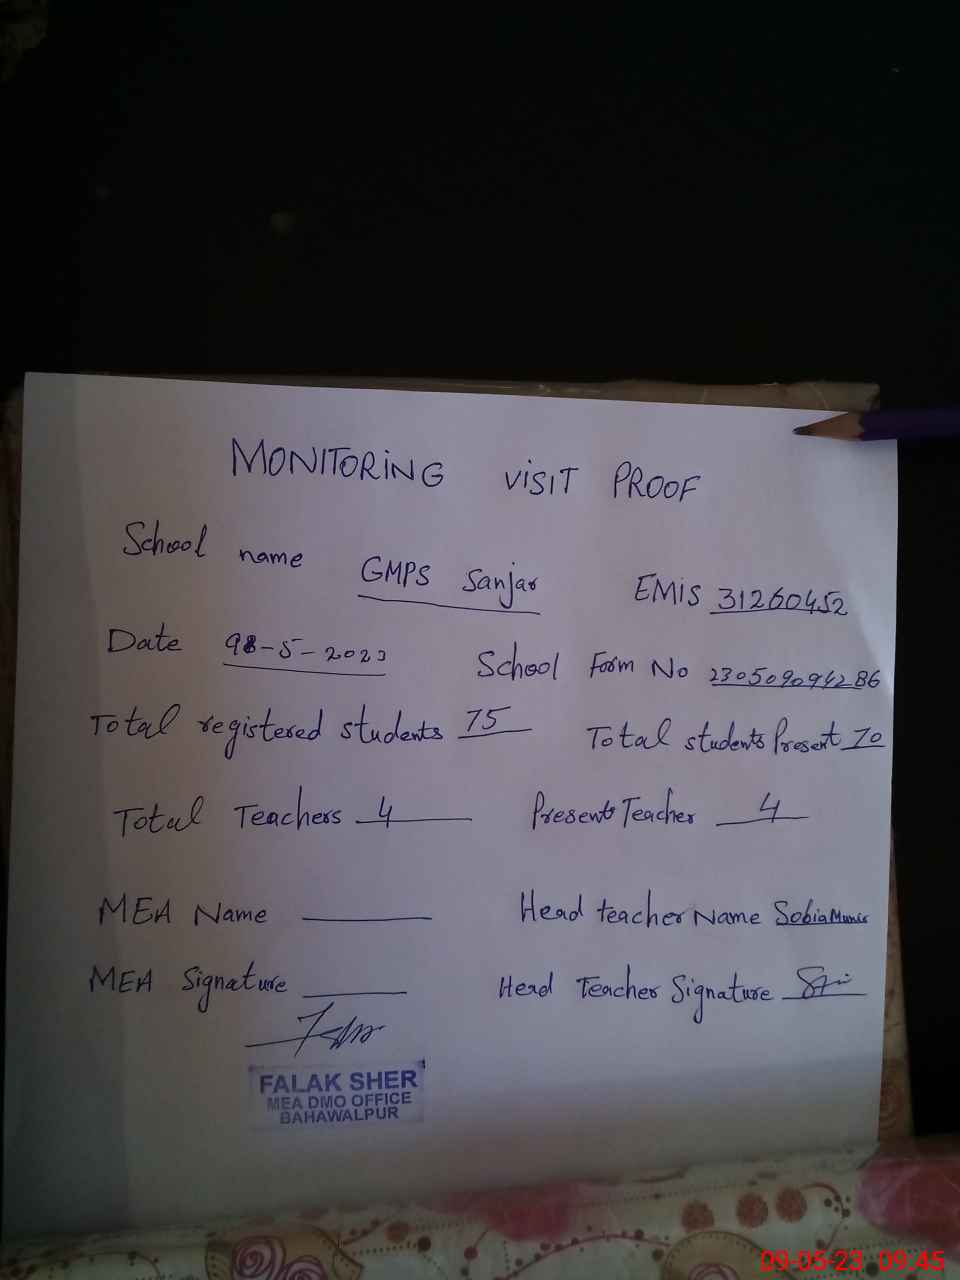 MONITORING VISIT PROOF
School name GMPS Sanjar EMIS 31260452
Date 98-5-2023 School Form No 230509094286
Total registered students 75 Total students Present 70
Total Teachers 4 Present Teacher 4
MEA Name Head teacher Name Sobia Munir
MEA Signature Head Teacher Signature
FALAK SHER
MEA DMO OFFICE
BAHAWALPUR
09-05-23 09:45